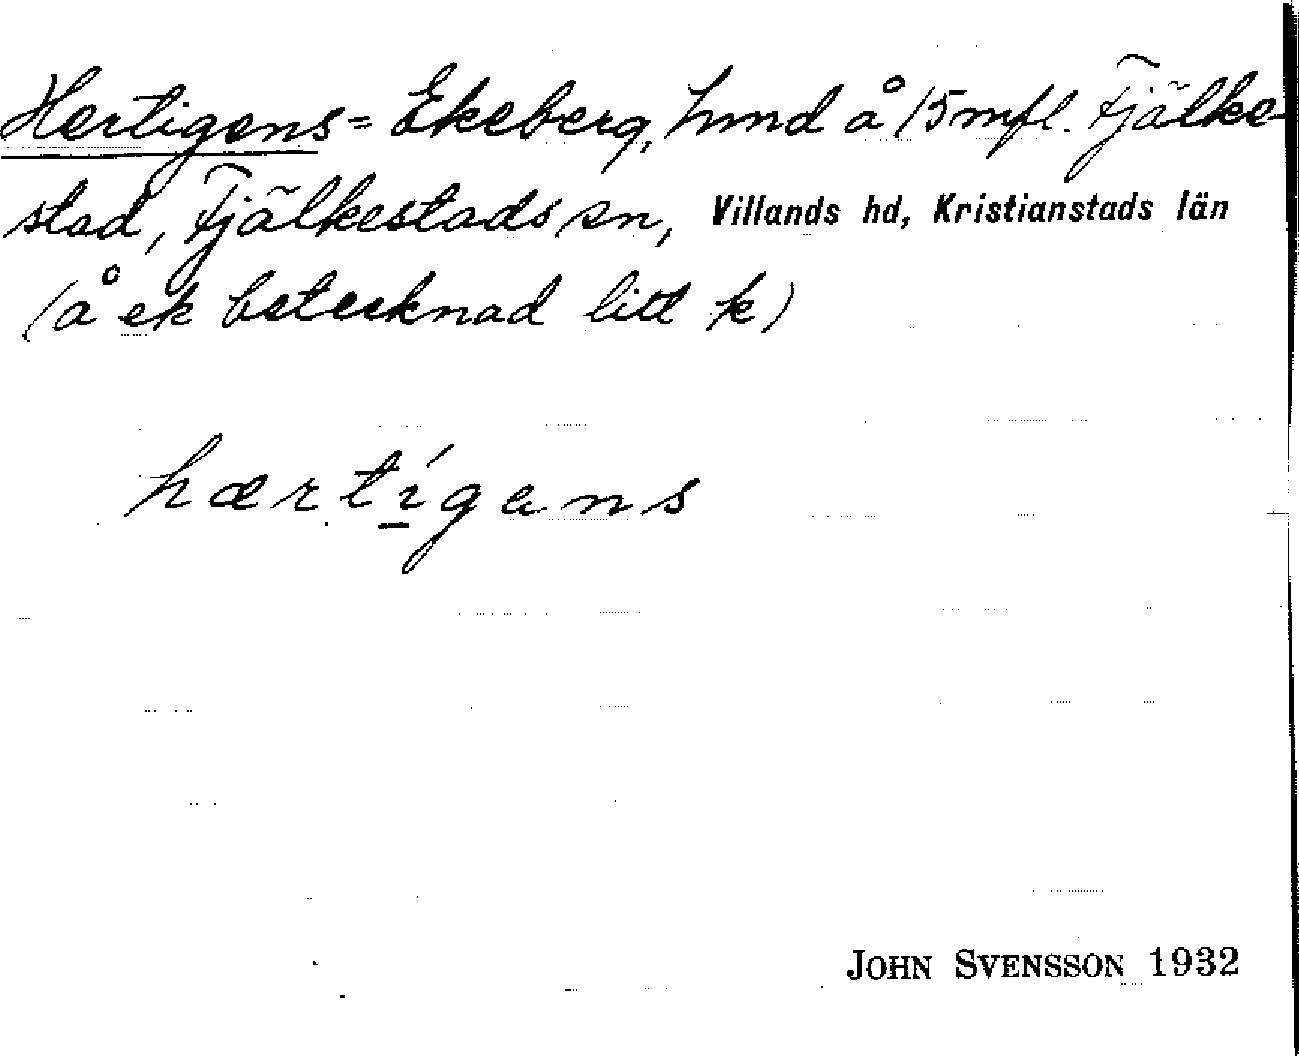 Hertigens = Ekeberg, hmd å 15 mfl. Fjälke-
stad, Fjälkestads sn, Villands hd, Kristianstads län
(å ek betecknad litt k)
hærtígens
JOHN SVENSSON 1932